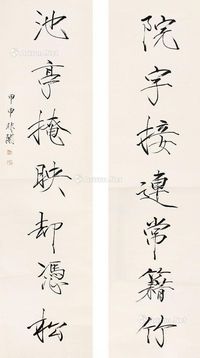 院宇接連常籍竹
池亭掩映却憑松
甲申 非闇